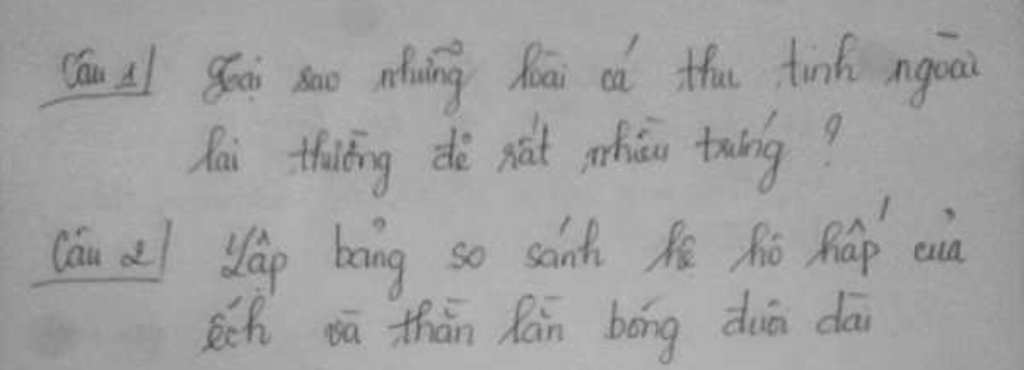 Câu 1/ Tại sao những loài cá thụ tinh ngoài
lại thường đẻ rất nhiều trứng ?
Câu 2/ Lập bảng so sánh hệ hô hấp của
ếch và thằn lằn bóng đuôi dài